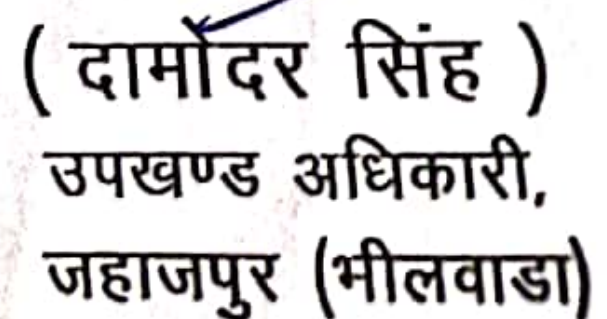 ( दामोदर सिंह )
उपखण्ड अधिकारी,
जहाजपुर (भीलवाडा)